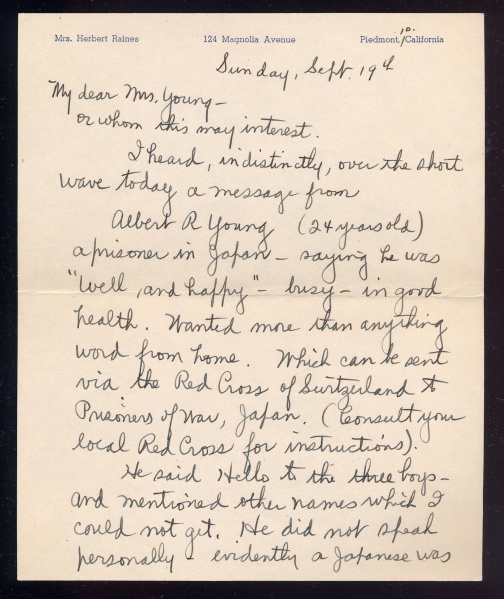 Mrs. Herbert Raines 124 Magnolia Avenue Piedmont, 10. California
Sunday, Sept 19th
My dear Mrs. Young -
or whom this may interest.
I heard, indistinctly, over the short
wave today a message from
Albert R Young (24 years old)
a prisoner in Japan - saying he was
"well, and happy" - busy - in good
health. Wanted more than anything
word from home. Which can be sent
via the Red Cross of Switzerland to
Prisoners of War, Japan. (Consult your
local Red Cross for instructions).
He said Hello to the three boys -
and mentioned other names which I
could not get. He did not speak
personally - evidently a Japanese was